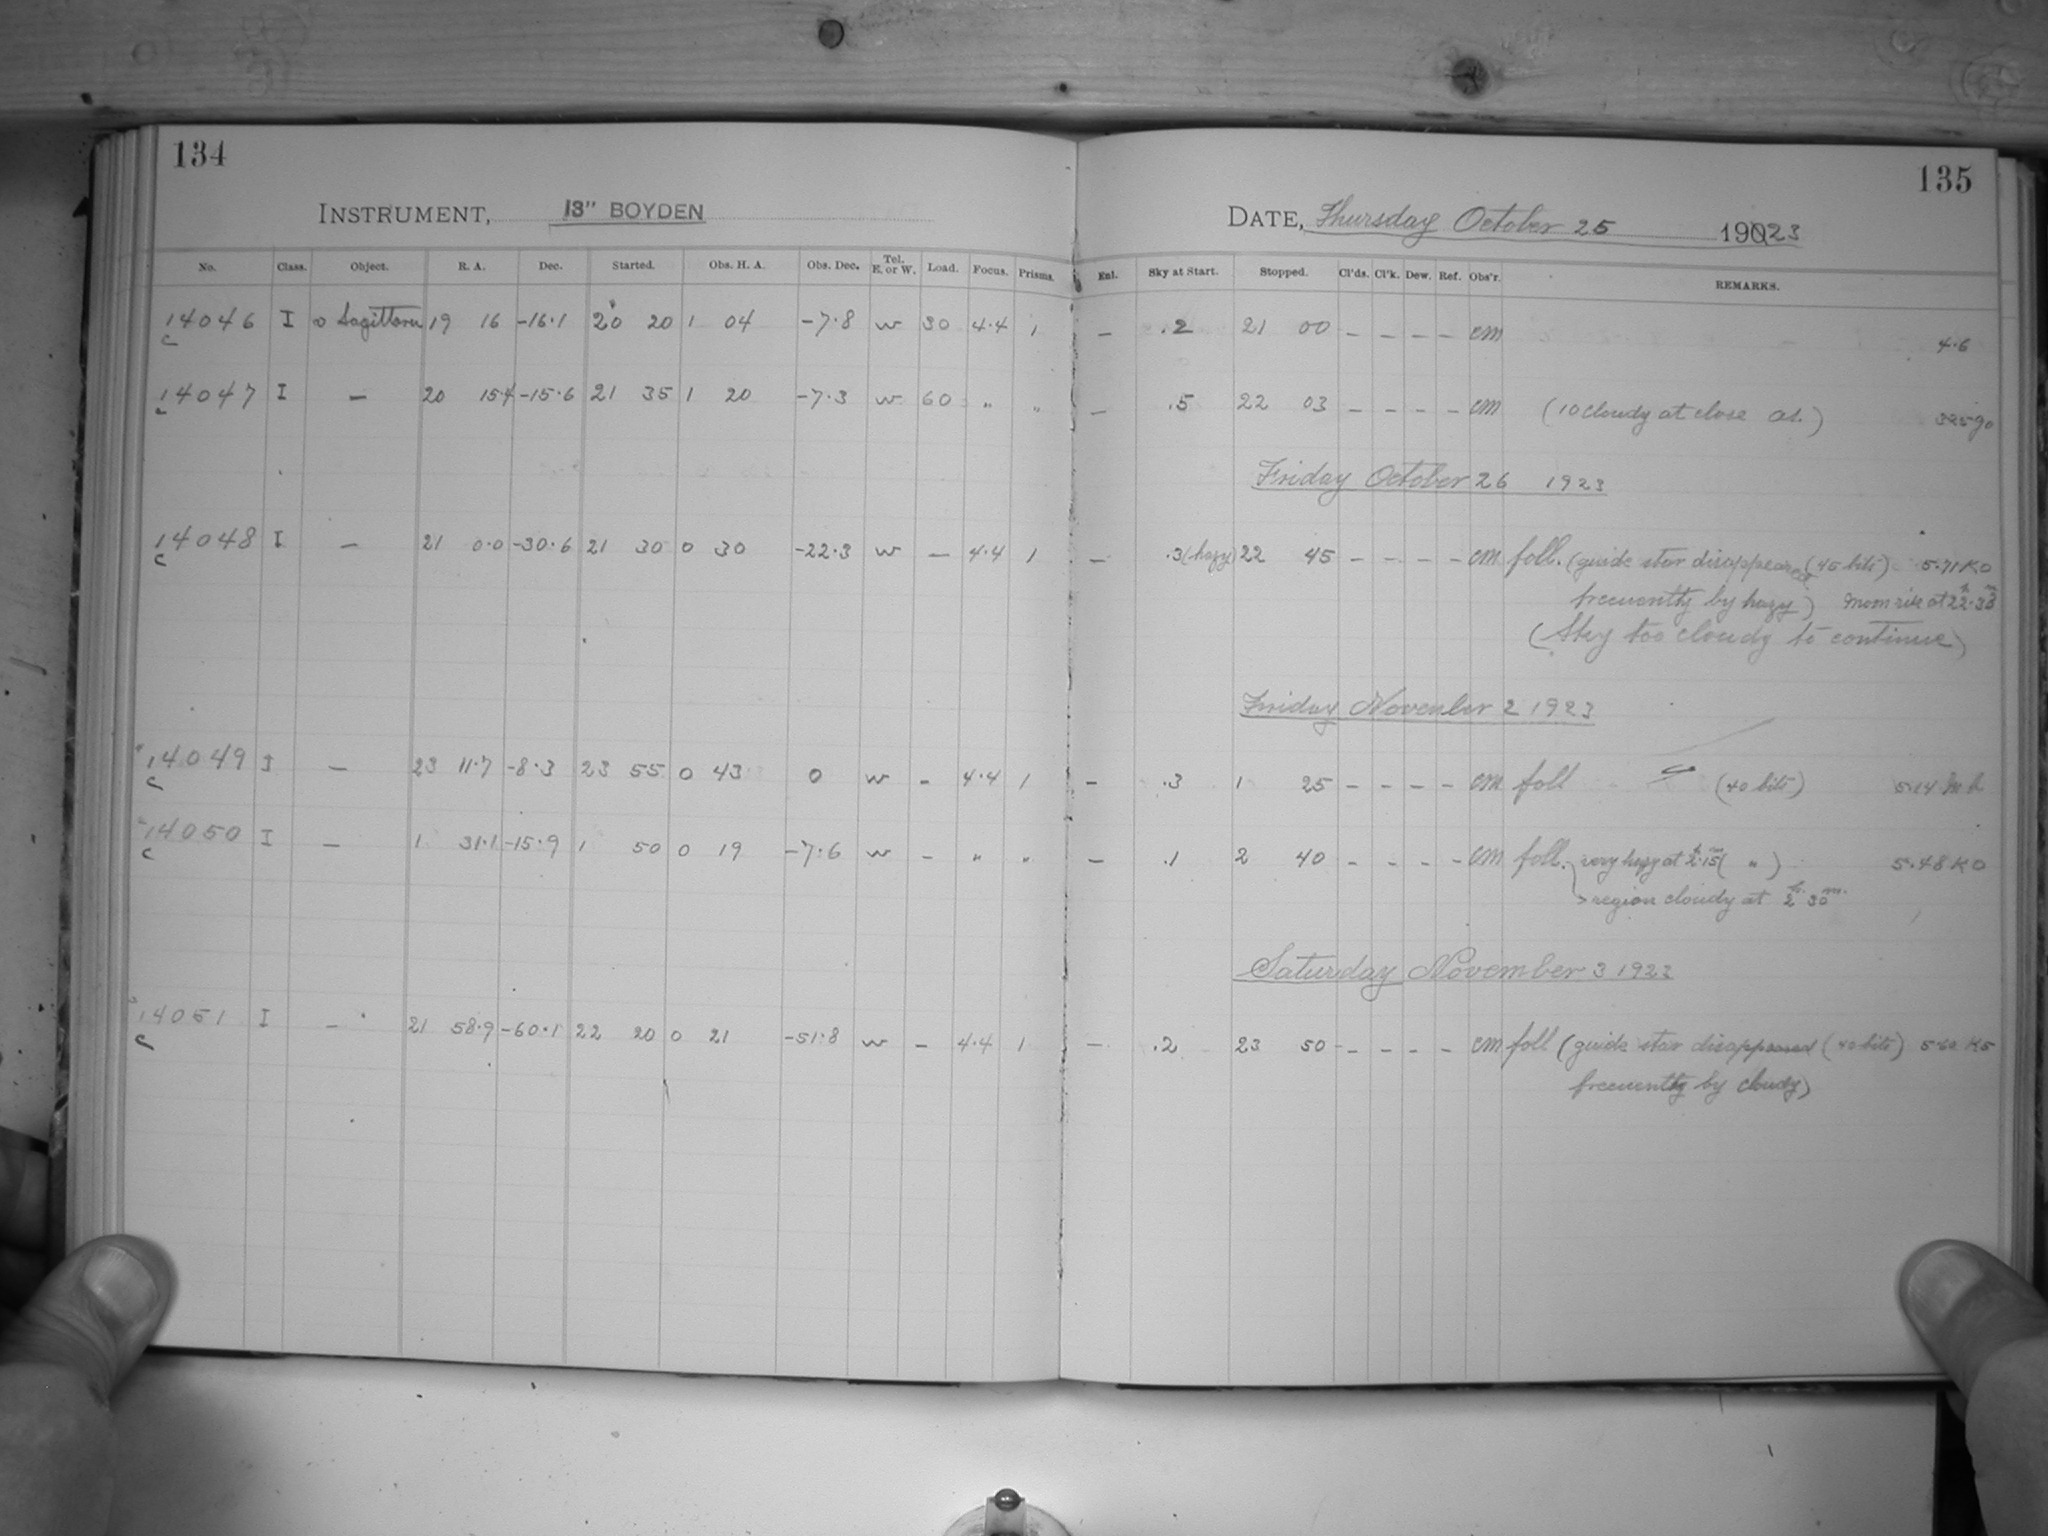 134
INSTRUMENT, 13" BOYDEN
No. Class. Object. R. A. Dec. Started. Obs. H. A. Obs. Dec. Tel. E. or W. Load. Focus. Prisms.
14046 I o Sagittarii 19 16 -16.1 20 20 1 04 -7.8 w 30 4.4 1
c
14047 I — 20 15.4 -15.6 21 35 1 20 -7.3 w 60 " "
c
14048 I — 21 0.0 -30.6 21 30 0 30 -22.3 w — 4.4 1
c
14049 I — 23 11.7 -8.3 23 55 0 43 0 w - 4.4 1
c
14050 I — 1 31.1 -15.9 1 50 0 19 -7.6 w - " "
c
14051 I — 21 58.9 -60.1 22 20 0 21 -51.8 w - 4.4 1
c
135
DATE, Thursday October 25 1923
Enl. Sky at Start. Stopped. Cl'ds. Cl'k. Dew. Ref. Obs'r. REMARKS.
— .2 21 00 - - - - cm 4.6
— .5 22 03 - - - - cm (10 cloudy at close as.)
Friday October 26 1923
— .3 (hazy) 22 45 - - - - cm foll. (guide star disappeared (45 bits) 5.71 K0
frecuently by hazy) Moon rise at
(Sky too cloudy to continue)
Friday November 2 1923
— .3 1 25 - - - - cm foll (40 bits) 5.14
— .1 2 40 - - - - cm foll. very hazy at 2h.15m ( " ) 5.48 K0
region cloudy at 2h 30m.
Saturday November 3 1923
— .2 23 50 - - - - cm foll (guide star disappeared (40 bits) K5
frecuently by cloudy)